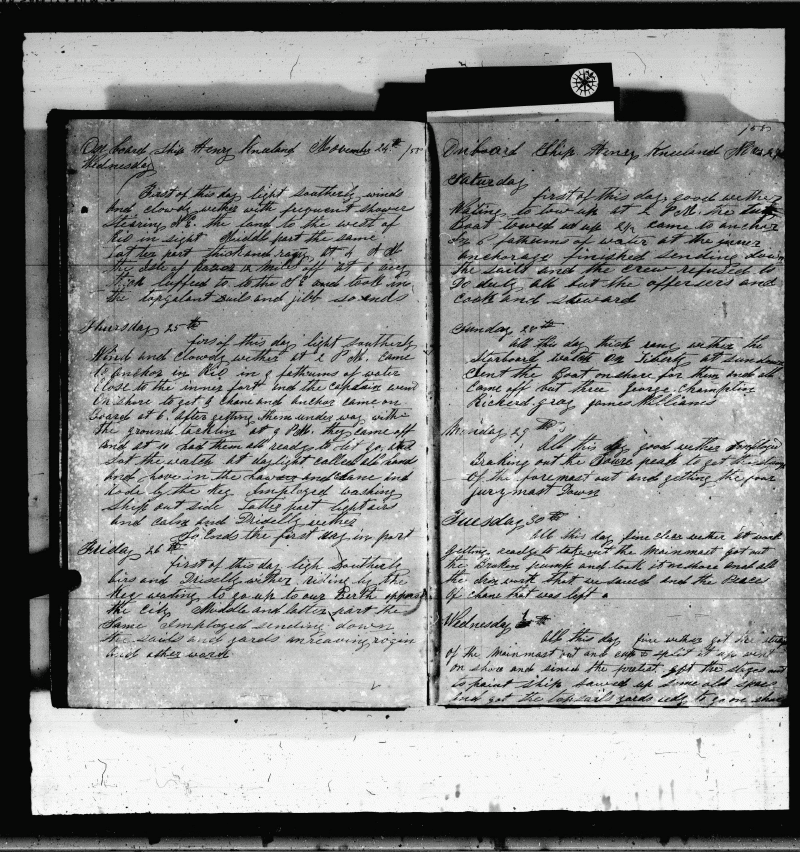 On board Ship Henry Kneeland November 24th /58
Wednesday
First of this day light southerly winds
and clowdy wether with frequent shower
stearing N.E. the land to the west of
Rio in sight Middle part the same
latter part thick and rany at 4 A M
the Isle of 2 Miles off at 6 very
thick luffed to to the and took in
the topgalant sails and jibb so ends
Thursday 25th
firs of this day light southerly
Wind and clowdy wether at 2 P M. came
to anchor in Rio in 9 fathums of water
Close to the inner fort and the captain went
on shore to get a chane and anchor came on
board at 6. after getting them under way with
the ground tacklin at 9 P M. they came off
and at 11 had them all ready to let go, and
sat the watch at daylight called all hands
and hove in the hawser and chane and
rode by the Keg Employed washing
Ship out side latter part light airs
and calm and Driselly wether
So Ends the first day in port
Friday 26th
first of this day ligh Southerly
airs and Driselly wither riding by the
Keg wating to go up to our Berth opposite
the City Middle and latter part the
Same Employed sending down
the sails and yards unreaving rogin
and other work
155
On board Ship Henry Kneeland Nov 27
Saturday
first of this day good wether
Wating to tow up at 2 P M. the tug
Boat towed us up 2½ came to anchor
In 6 fathums of water at the inner
anchorage finished sending down
the sails and the crew refused to
Do duty all but the offersers and
cook and steward
Sunday 28th
all this day thick rany wether the
Starboard watch on Liberty at sundown
Sent the Boat onshore for them and all
Came off but three George Champlin
Richerd gray James Williams
Monday 29th
All this day good wether Employed
Braking out the fore peak to get the stump
Of the foremast out and getting the four
jurymast Down
Tuesday 30th
All this day fine clear wether at work
getting ready to take out the Mainmast got out
the Broken pump and took it on shore and all
the iron work that we saved and the Peaces
Of chane that was left
Wednesday
All this day fine wether got the stump
of the Mainmast out and split it up went
on shore and sined the protest got the stages out
to paint ship sawed up some old spars
And got the topsails yards redy to go on shore